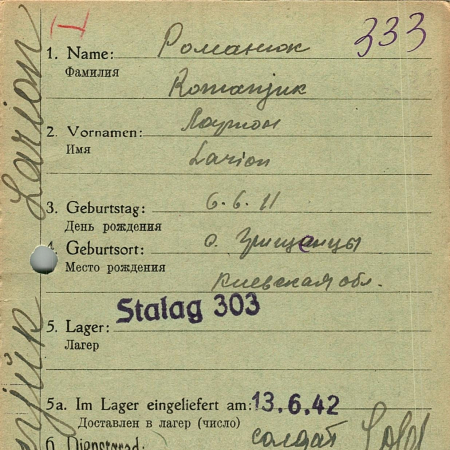 333
1. Name: Романюк
Фамилия
Romanjuk
2. Vornamen: Ларион
Имя
Larion
3. Geburtstag: 6.6.11
День рождения
4. Geburtsort: с. Зрищенцы
Место рождения
Киевская обл.
Stalag 303
5. Lager:
Лагерь
5a. Im Lager eingeliefert am: 13.6.42
Доставлен в лагерь (число)
6. Dienstgrad: солдат Sold
Larion